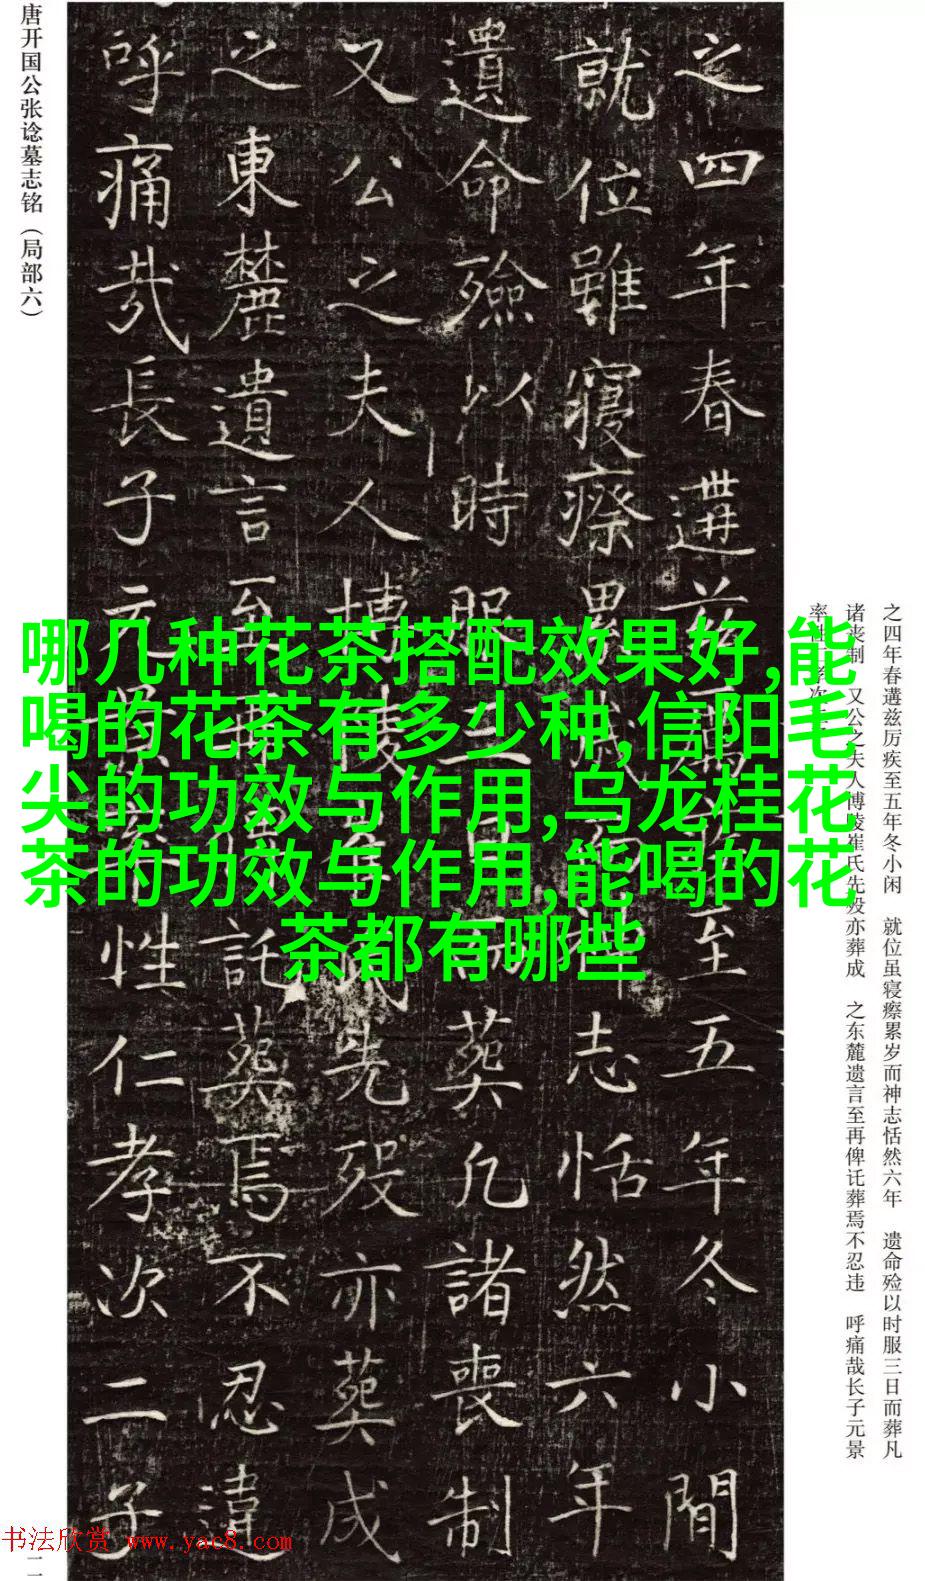 唐开国公张谂墓志铭（局部六）
之四年春遘茲厲至五年冬小閒
就位雖寢瘵累志恬然六年
遺命殮以時服三葬凡諸喪制
又公之夫人博陵先歿亦葬成
之東麓遺言至託葬焉不忍違
呼痛哉長子元性仁孝次二子
哪几种花茶搭配效果好,能
喝的花茶有多少种,信阳毛
尖的功效与作用,乌龙桂花
茶的功效与作用,能喝的花
茶都有哪些
之四年春遘兹厉疾至五年冬小闲　就位虽寝瘵累岁而神志恬然六年　遗命殓以时服三日而葬凡
诸丧制　又公之夫人博陵崔氏先殁亦葬成　之东麓遗言至再俾讬葬焉不忍违　呼痛哉长子元景
率
书法欣赏 www.yac8.com